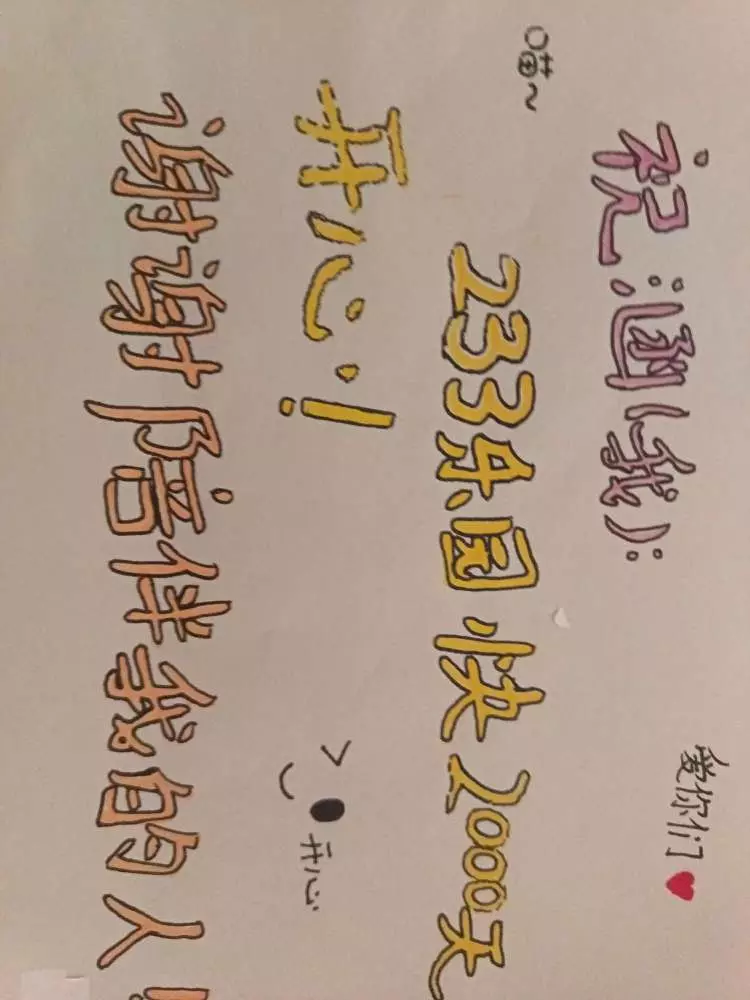 祝涵(我):
爱你们
喵~
233乐园快2000天
开心!
开心
谢谢陪伴我的人!